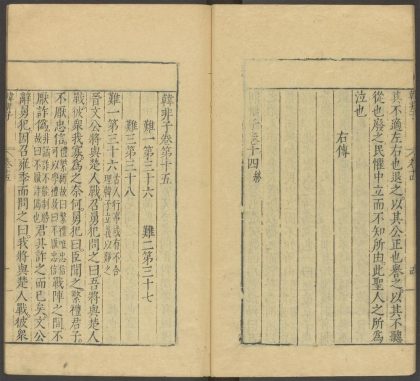 其不適左右也退之以其公正也譽之以其不聽
從也廢之民懼中立而不知所由此聖人之所為
泣也
右傳
韓非子卷第十五
難一第三十六 難二第三十七
難三第三十八
難一第三十六
晉文公將與楚人戰召舅犯問之曰吾將與楚人
戰彼眾我寡為之奈何舅犯曰臣聞之繁禮君子
不厭忠信
戰陣之閒不
厭詐偽
君其詐之而已矣文公
辭舅犯因召雍季而問之曰我將與楚人戰彼眾